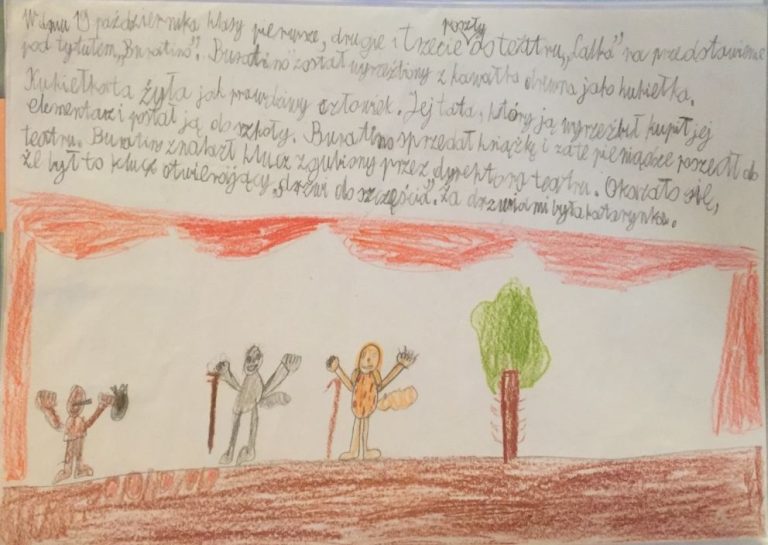 poszły
W dniu 19 października klasy pierwsze, drugie i trzecie do teatru „Lalka” na przedstawienie
pod tytułem „Buratino”. Buratino został wyrzeźbiony z kawałka drewna jako kukiełka.
Kukiełka ta żyła jak prawdziwy człowiek. Jej tata, który ją wyrzeźbił kupił jej
elementarz i posłał ją do szkoły. Buratino sprzedał książkę i za te pieniądze poszedł do
teatru. Buratino znalazł klucz zgubiony przez dyrektora teatru. Okazało się,
że był to klucz otwierający „drzwi do szczęścia”. Za drzwiami była katarynka.